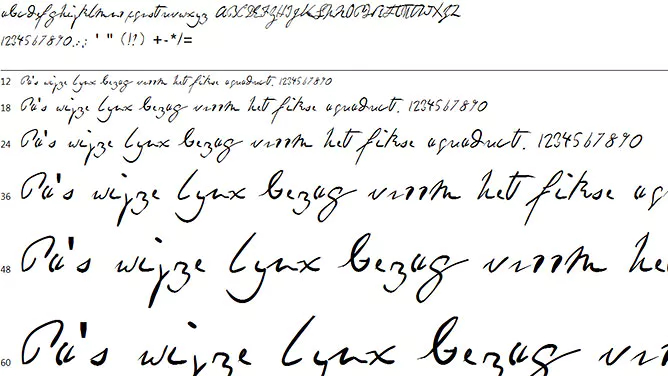 abcdefghijklmnopqrstuvwxyz ABCDEFGHIJKLMNOPQRSTUVWXYZ
1234567890.:,; ' " (!?) +-*/=
12 Pa's wijze lynx bezag vroom het fikse aquaduct. 1234567890
18 Pa's wijze lynx bezag vroom het fikse aquaduct. 1234567890
24 Pa's wijze lynx bezag vroom het fikse aquaduct. 1234567890
36 Pa's wijze lynx bezag vroom het fikse aq
48 Pa's wijze lynx bezag vroom he
60 Pa's wijze lynx bezag v